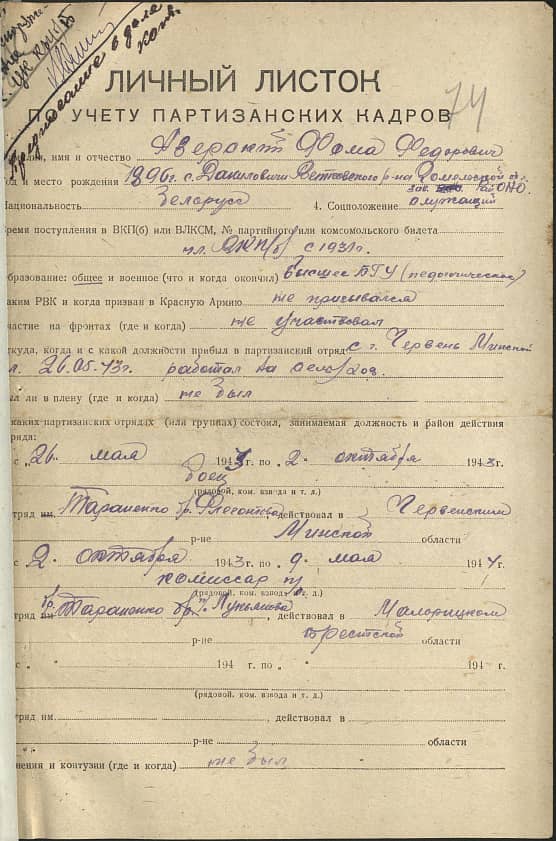 ЛИЧНЫЙ ЛИСТОК
ПО УЧЕТУ ПАРТИЗАНСКИХ КАДРОВ
74
имя и отчество Фома Федорович
место рождения 1896г. с. Даниловичи Ветковского р-на Гомельской
ациональность Белорусс 4. Соцположение служащий
ремя поступления в ВКП(б) или ВЛКСМ, № партийного или комсомольского билета
чл. ВКП(б) с 1931г.
бразование: общее и военное (что и когда окончил) Высшее БГУ (педагогическое)
аким РВК и когда призван в Красную Армию не призывался
частие на фронтах (где и когда) не участвовал
ткуда, когда и с какой должности прибыл в партизанский отряд с г. Червень Минской
26.05.43г. работал на
ыл ли в плену (где и когда) не был
каких партизанских отрядах (или группах) состоял, занимаемая должность и район действия
ряда:
с „26 мая 1943г. по „2 октября 1943г.
боец
(рядовой, ком. взвода и т. д.)
тряд им. Тараненко бр. действовал в Червенском
р-не Минской области
с „2 октября 1943г. по „9 мая 1944г.
комиссар
(рядовой, ком. взвода и т. д.)
тряд им. Тараненко бр. , действовал в Малорицком
Брестской области
с „ “ 194 г. по „ “ 194 г.
(рядовой, ком. взвода и т. д.)
тряд им. , действовал в
р-не области
нения и контузии (где и когда) не был